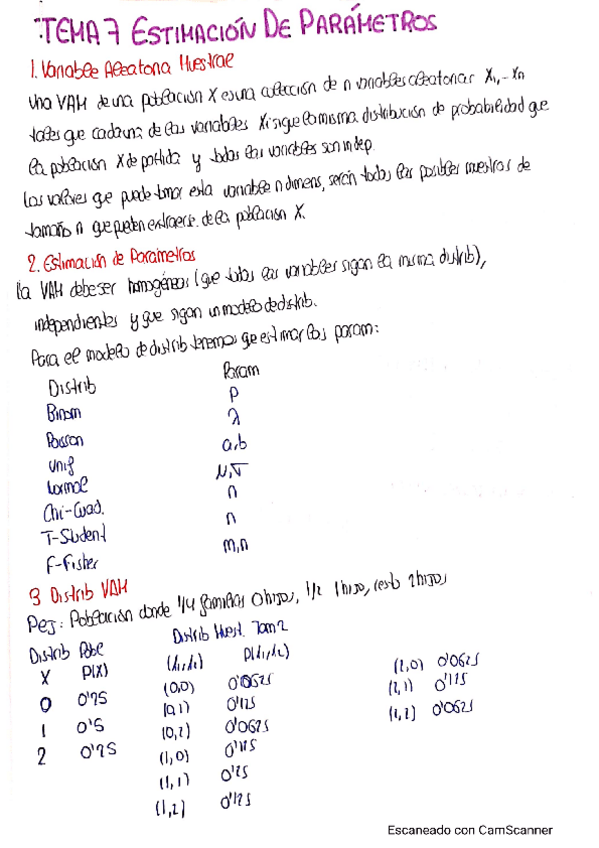 TEMA 7 ESTIMACIÓN DE PARÁMETROS
1. Variable Aleatoria Muestral
Una VAM de una población X es una colección de n variables aleatorias X₁,..Xn
tales que cada una de las variables Xi sigue la misma distribución de probabilidad que
la población X de partida y todas las variables son indep.
Los valores que puede tomar esta variable n dimens, serán todas las posibles muestras de
tamaño n que pueden extraerse de la población X.
2. Estimación de Parámetros
La VAM debe ser homogéneas (que todas las variables sigan la misma distrib),
independientes y que sigan un modelo de distrib.
Para el modelo de distrib tenemos que estimar los param:
Distrib Param
Binom P
Poisson λ
Unif a,b
Normal μ,σ
Chi-Cuad. n
T-Student n
F-Fisher m,n
3 Distrib VAM
Pej: Población donde 1/4 familias 0 hijos, 1/2 1 hijo, resto 2 hijos
Distrib Pobl Distrib Muest. Tam 2
X P(X)
0 0'25 (0,0) 0'0625 (2,0) 0'0625
1 0'5 (0,1) 0'125 (2,1) 0'125
2 0'25 (0,2) 0'0625 (2,2) 0'0625
(1,0) 0'125
(1,1) 0'25
(1,2) 0'125
Escaneado con CamScanner